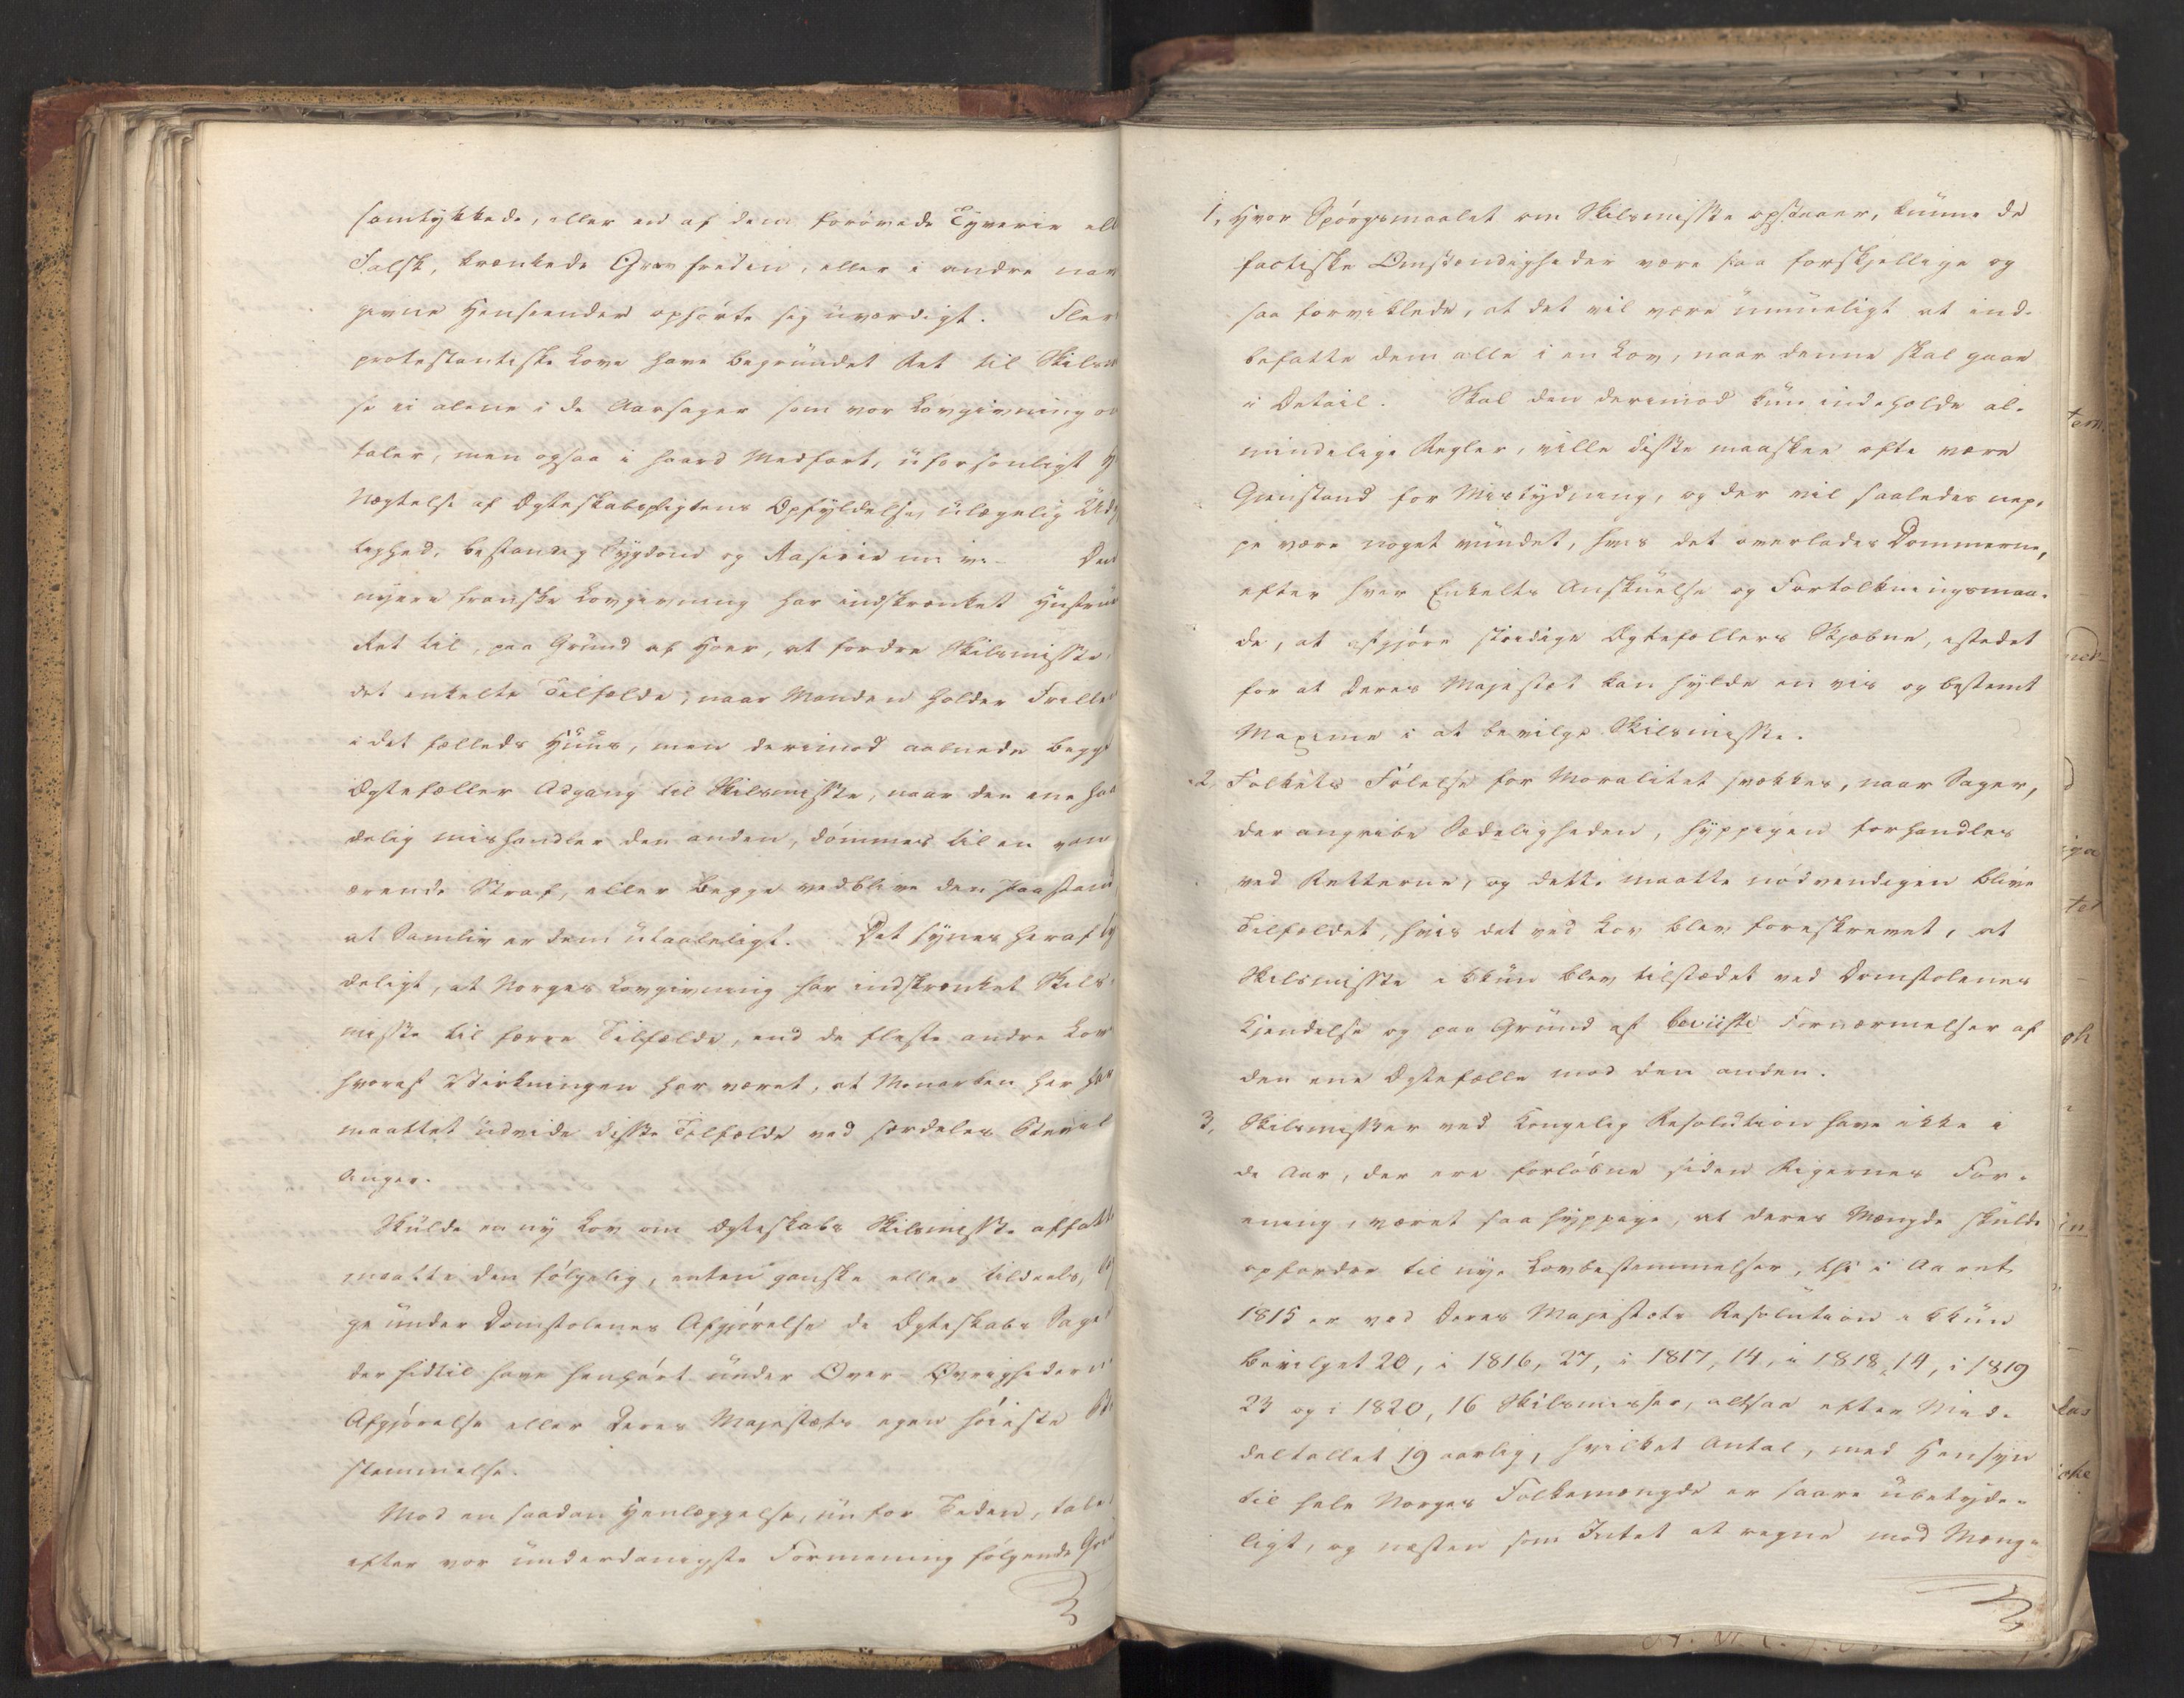 samtykkede, eller en af dem forøvede Tyverie ell
Falsk, krænkede Gravfreden, eller i andre nav
givne Henseender opførte sig uværdigt. Fler
protestantiske Love have begrundet Ret til Skilsm
se ei alene i de Aarsager som vor Lovgivning
taler, men ogsaa i haard Medfart, uforsonligt
Nægtelse af Ægteskabspligtens Opfyldelse, ulægelig
lighed, bestandig Sygdom og Raserie
nyere franske Lovgivning har indskrænket Hustrue
Ret til, paa Grund af Hoer, at fordre Skilsmisse,
det enkelte Tilfælde, naar Manden holder Frille
i det fælleds Huus, men derimod aabnede begge
Ægtefæller Adgang til Skilsmisse, naar den ene haa
delig mishandler den anden, dømmes til en van
ærende Straf, eller begge vedblive den Paastand
at Samliv er dem utaaleligt. Det synes heraf ty
deligt, at Norges Lovgivning har indskrænket Skils-
misse til færre Tilfælde, end de fleste andre Lov
hvoraf Virkningen har været, at Monarken her har
maattet udvide disse Tilfælde ved særdeles Bevil
linger.
Skulde en ny Lov om Ægteskabs Skilsmisse affatt
maatte den følgelig, enten ganske eller tildeels, læg
ge under Domstolenes Afgjørelse de Ægteskabs Sager
der hidtil have henhørt under Over-Øvrighedern
Afgjørelse eller Deres Majestæts egen høieste Be
stemmelse.
Mod en saadan Henlæggelse, nu for Tiden, tale
efter vor underdanigste Formening følgende Gru
1, Hvor Spørgsmaalet om Skilsmisse opstaaer, kunne de
factiske Omstændigheder være saa forskjellige og
saa forviklede, at det vil være umueligt at ind-
befatte dem alle i en Lov, naar denne skal gaae
i Detail. Skal den derimod kun indeholde al-
mindelige Regler, ville disse maaskee ofte være
Gienstand for Mistydning, og der vil saaledes nep-
pe være noget vundet, hvis det overlades Dommerne,
efter hver Enkelts Anskuelse og Fortolkningsmaa-
de, at afgjøre stridige Ægtefællers Skjæbne, istedet
for at Deres Majestæt kan hylde en vis og bestemt
Maxime i at bevilge Skilsmisse.
2, Folkets Følelse for Moralitet svækkes, naar Sager,
der angribe Sædeligheden, hyppigen forhandles
ved Retterne, og dette maatte nødvendigen blive
Tilfældet, hvis det ved Lov blev foreskrevet, at
Skilsmisse ikkun blev tilstædet ved Domstolenes
Kjendelse og paa Grund af beviiste Fornærmelser af
den ene Ægtefælle mod den anden.
3, Skilsmisser ved Kongelig Resolution have ikke i
de Aar, der ere forløbne siden Rigernes For-
ening, været saa hyppige, at deres Mængde skulde
opfordre til nye Lovbestemmelser, thi i Aaret
1815 er ved Deres Majestæts Resolution ikkun
bevilget 20, i 1816, 27, i 1817, 14, i 1818, 14, i 1819
23 og i 1820, 16 Skilsmisser, altsaa efter Mid-
deltallet 19 aarlig, hvilket Antal, med Hensyn
til hele Norges Folkemængde er saare ubetyde-
ligt, og næsten som Intet at regne mod Mæng-